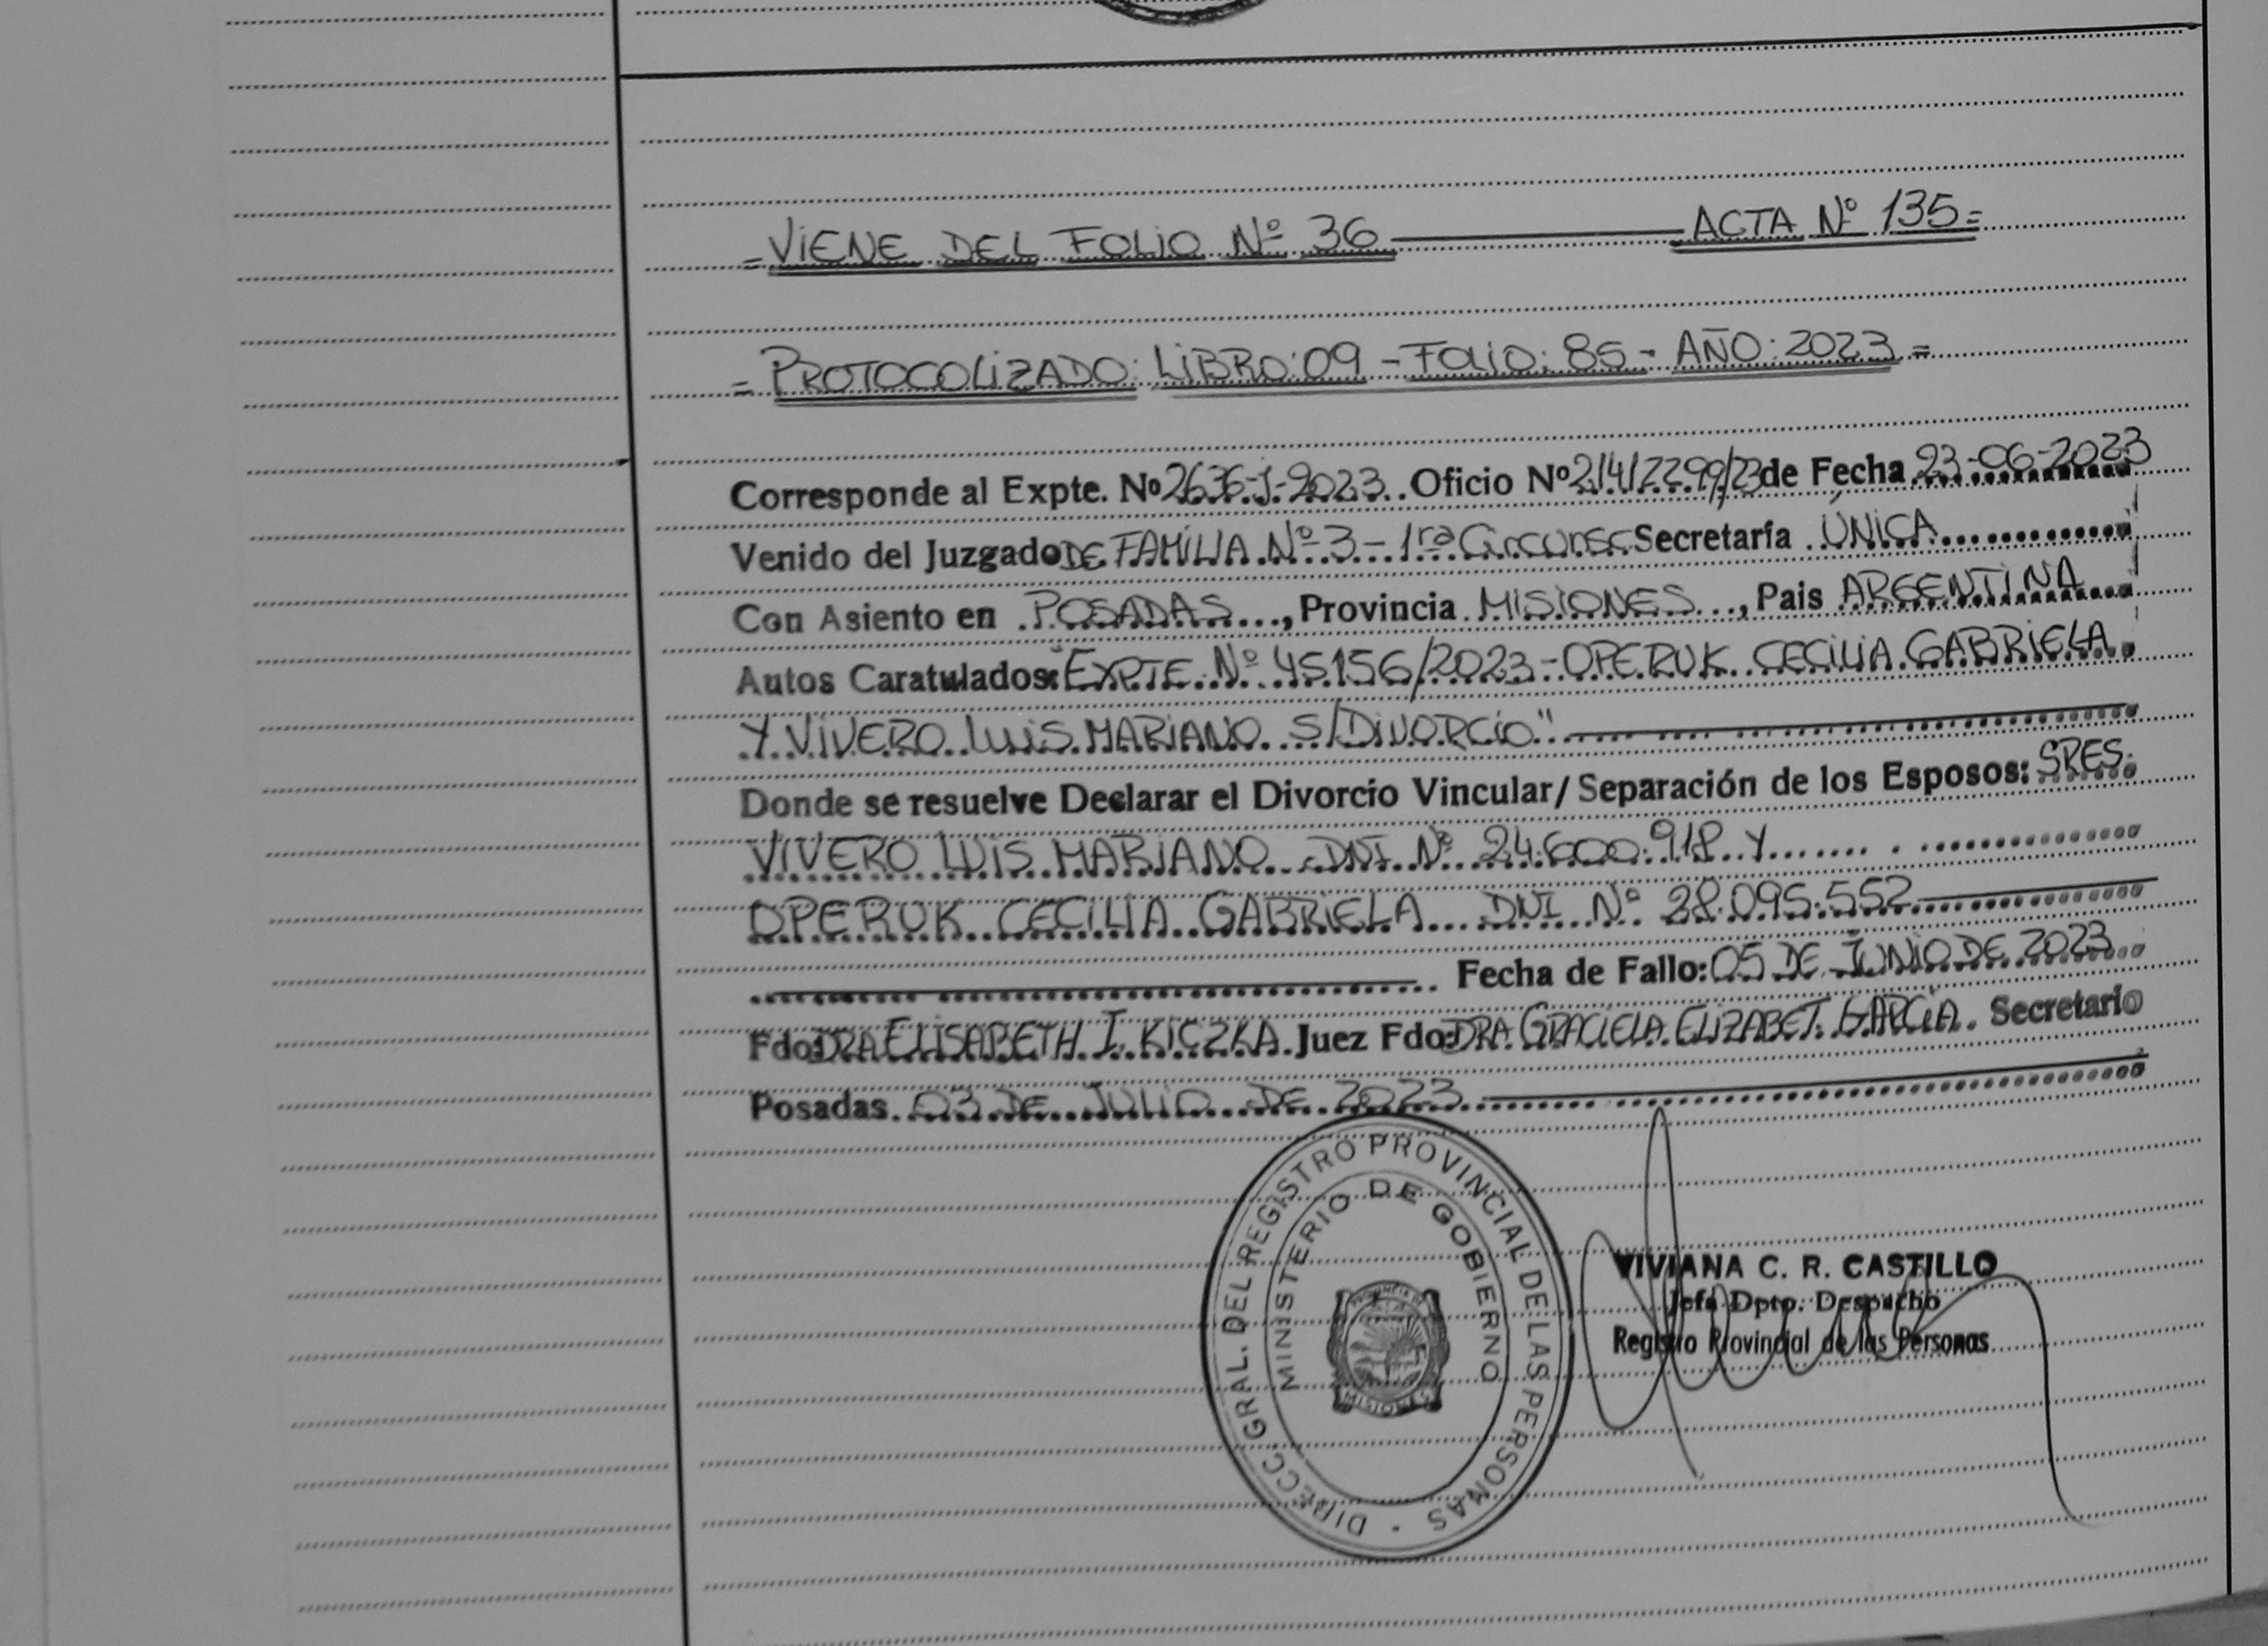 = VIENE DEL FOLIO Nº 36 ——— ACTA Nº 135 =
= PROTOCOLIZADO: LIBRO: 09 - FOLIO: 85 - AÑO: 2023 =
Corresponde al Expte. Nº 2636-J-2023. Oficio Nº 214/2299/23 de Fecha 23-06-2023
Venido del Juzgado DE FAMILIA Nº 3 - 1ra Circunsc Secretaría ÚNICA
Con Asiento en POSADAS, Provincia MISIONES, Pais ARGENTINA
Autos Caratulados: "EXPTE Nº 45156/2023 - OPERUK CECILIA GABRIELA
Y VIVERO LUIS MARIANO S/DIVORCIO"
Donde se resuelve Declarar el Divorcio Vincular/Separación de los Esposos: SRES.
VIVERO LUIS MARIANO DNI Nº 24.600.918 Y
OPERUK CECILIA GABRIELA DNI Nº 28.095.552
Fecha de Fallo: 05 DE JUNIO DE 2023
Fdo: DRA ELISABETH I. KICZKA. Juez Fdo: DRA. GRACIELA ELIZABET GARCÍA. Secretario
Posadas. 03 DE JULIO DE 2023
DIRECC. GRAL. DEL REGISTRO PROVINCIAL DE LAS PERSONAS -
MINISTERIO DE GOBIERNO
PROVINCIA DE
MISIONES
VIVIANA C. R. CASTILLO
Jefa Dpto. Despacho
Registro Provincial de las Personas